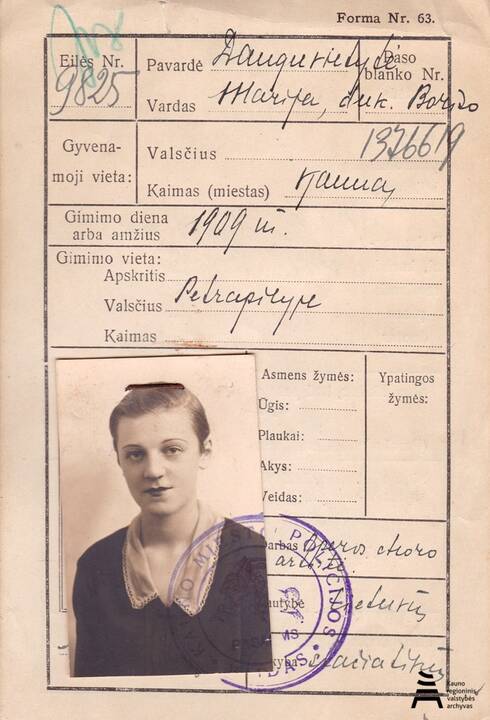 Forma Nr. 63.
Eilės Nr.
9825
Pavardė Daugvietytė
Vardas Marija, duk. Boriso
Paso blanko Nr.
1376619
Gyvena-
moji vieta:
Valsčius
Kaimas (miestas) Kaunas
Gimimo diena
arba amžius 1909 m.
Gimimo vieta:
Apskritis
Valsčius Petrapilyje
Kaimas
Asmens žymės:
Ūgis:
Plaukai:
Akys:
Veidas:
Ypatingos
žymės:
Darbas Operos choro
autybė Lietuvių
Kauno
regioninis
valstybės
archyvas